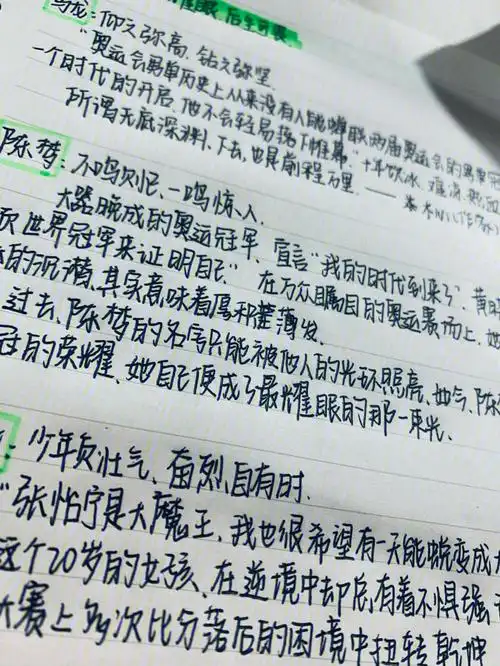 后生可畏
马龙：仰之弥高，钻之弥坚
"奥运会男单历史上从来没有人能蝉联两届奥运会的男单
一个时代的开启，他不会轻易拉下帷幕，十年饮水，难凉热血
所谓无底深渊，下去，也是前程万里。——
陈梦：不鸣则已，一鸣惊人.
大器晚成的奥运冠军，宣言"我的时代到来了"，黄
世界冠军来证明自己"在万众瞩目的奥运赛场上，她
的沉潜，其实意味着厚积薄发。
过去，陈梦的名字只能被他人的光环照亮，如今，陈
冠的荣耀，她自己便成了最耀眼的那一束光.
：少年负壮气，奋烈自有时.
"张怡宁是大魔王，我也很希望有一天能蜕变成大
这个20岁的女孩，在逆境中却总有着不惧强
大赛上多次比分落后的困境中扭转乾坤